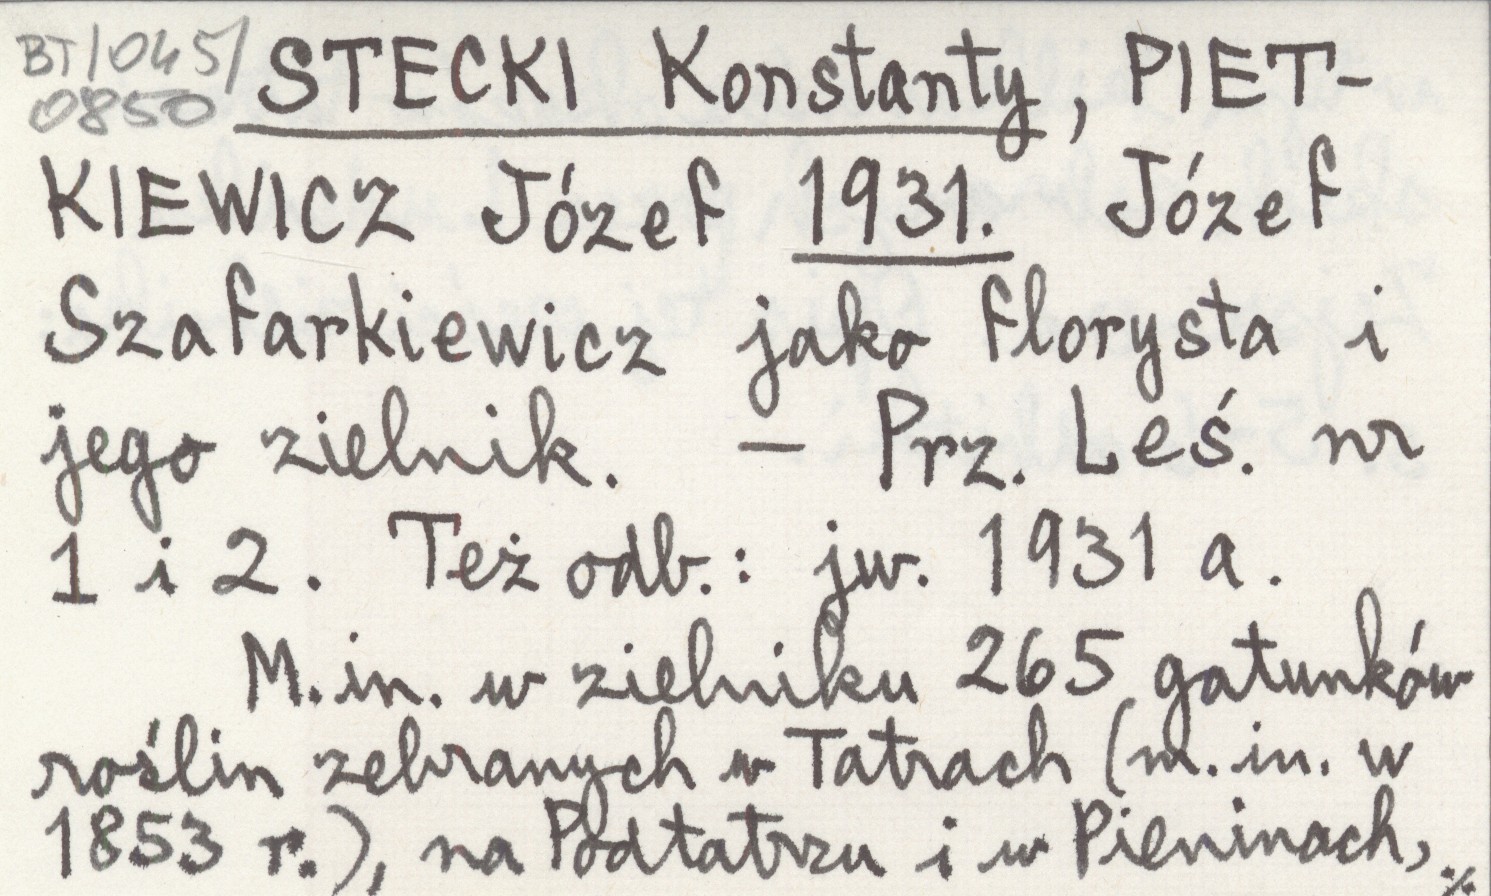 BT/045/
0850
STECKI Konstanty, PIET-
KIEWICZ Józef 1931. Józef
Szafarkiewicz jako florysta i
jego zielnik. — Prz. Leś. nr
1 i 2. Też odb.: jw. 1931 a.
M. in. w zielniku 265 gatunków
roślin zebranych w Tatrach (m. in. w
1853 r.), na Podtatrzu i w Pieninach, ./.